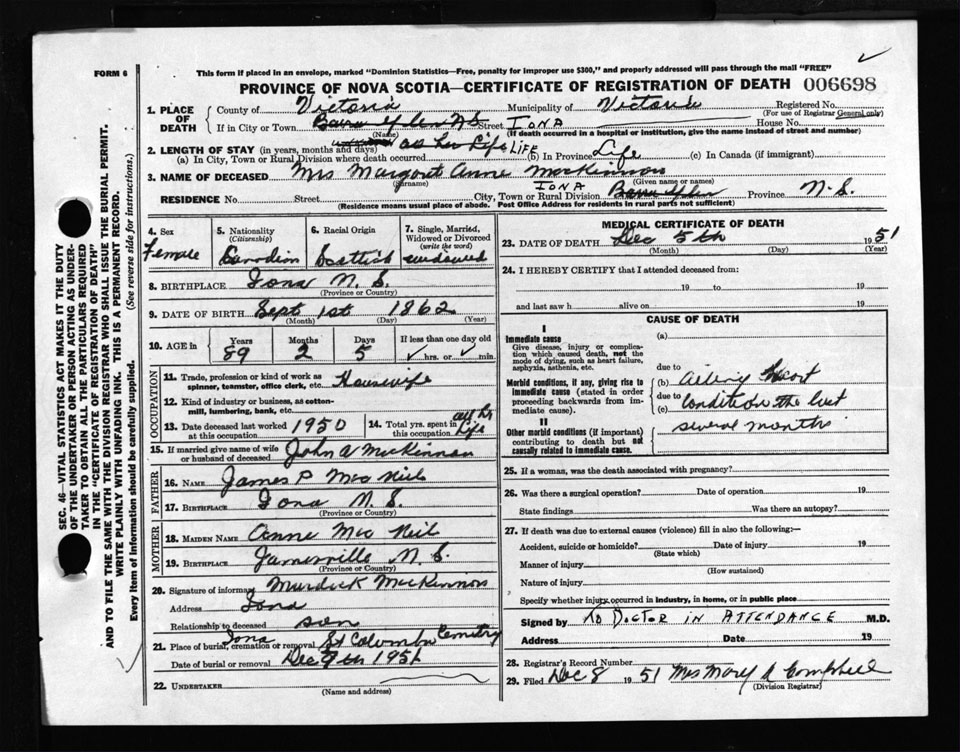 FORM 6
This form if placed in an envelope, marked "Dominion Statistics—Free, penalty for improper use $300," and properly addressed will pass through the mail "FREE"
PROVINCE OF NOVA SCOTIA—CERTIFICATE OF REGISTRATION OF DEATH 006698
1. PLACE OF DEATH
County of Victoria Municipality of Victoria Registered No.
(For use of Registrar General only)
If in City or Town Barra Glen N S Street IONA House No.
(Name) (If death occurred in a hospital or institution, give the name instead of street and number)
2. LENGTH OF STAY (in years, months and days) all her Life LIFE
(a) In City, Town or Rural Division where death occurred (b) In Province Life (c) In Canada (if immigrant)
3. NAME OF DECEASED Mrs Margaret Anne MacKinnon
(Surname) (Given name or names)
RESIDENCE No. Street City, Town or Rural Division IONA Barra Glen Province N. S.
(Residence means usual place of abode. Post Office Address for residents in rural parts not sufficient)
4. Sex Female
5. Nationality (Citizenship) Canadian
6. Racial Origin Scottish
7. Single, Married, Widowed or Divorced (write the word) widowed
8. BIRTHPLACE Iona N. S.
(Province or Country)
9. DATE OF BIRTH Sept 1st 1862
(Month) (Day) (Year)
10. AGE in Years 89 Months 2 Days 5 If less than one day old hrs. or min.
OCCUPATION
11. Trade, profession or kind of work as spinner, teamster, office clerk, etc. Housewife
12. Kind of industry or business, as cotton-mill, lumbering, bank, etc.
13. Date deceased last worked at this occupation 1950
14. Total yrs. spent in this occupation all her Life
15. If married give name of wife or husband of deceased John A MacKinnon
FATHER
16. NAME James P Mac Neil
17. BIRTHPLACE Iona N. S.
(Province or Country)
MOTHER
18. MAIDEN NAME Anne Mac Neil
19. BIRTHPLACE Jamesville N. S.
(Province or Country)
20. Signature of informant Murdock MacKinnon
Address Iona
Relationship to deceased son
21. Place of burial, cremation or removal Iona St Columba Cemetry
Date of burial or removal Dec 9th 1951
22. UNDERTAKER
(Name and address)
MEDICAL CERTIFICATE OF DEATH
23. DATE OF DEATH Dec 5th 1951
(Month) (Day) (Year)
24. I HEREBY CERTIFY that I attended deceased from:
19 to 19
and last saw h alive on 19
CAUSE OF DEATH
I
Immediate cause
Give disease, injury or complication which caused death, not the mode of dying, such as heart failure, asphyxia, asthenia, etc.
(a)
due to
Morbid conditions, if any, giving rise to immediate cause (stated in order proceeding backwards from immediate cause).
(b) Ailing Heart
due to
(c) Condition the last
II
Other morbid conditions (if important) contributing to death but not causally related to immediate cause.
several months
25. If a woman, was the death associated with pregnancy?
26. Was there a surgical operation? Date of operation 19
State findings Was there an autopsy?
27. If death was due to external causes (violence) fill in also the following:—
Accident, suicide or homicide? Date of injury 19
(State which)
Manner of injury
(How sustained)
Nature of injury
Specify whether injury occurred in industry, in home, or in public place
Signed by No DOCTOR IN ATTENDANCE M.D.
Address Date 19
28. Registrar's Record Number
29. Filed Dec 8 1951 Mrs Mary A Campbell
(Division Registrar)
SEC. 46—VITAL STATISTICS ACT MAKES IT THE DUTY
OF THE UNDERTAKER OR PERSON ACTING AS UNDERTAKER TO OBTAIN ALL THE PARTICULARS REQUIRED
IN THE "CERTIFICATE OF REGISTRATION OF DEATH"
AND TO FILE THE SAME WITH THE DIVISION REGISTRAR WHO SHALL ISSUE THE BURIAL PERMIT.
WRITE PLAINLY WITH UNFADING INK. THIS IS A PERMANENT RECORD.
Every item of information should be carefully supplied. (See reverse side for instructions.)